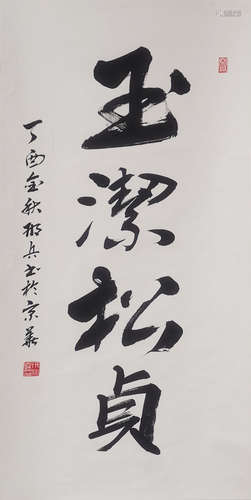 玉潔松貞
丁酉金秋柳兵书於京華